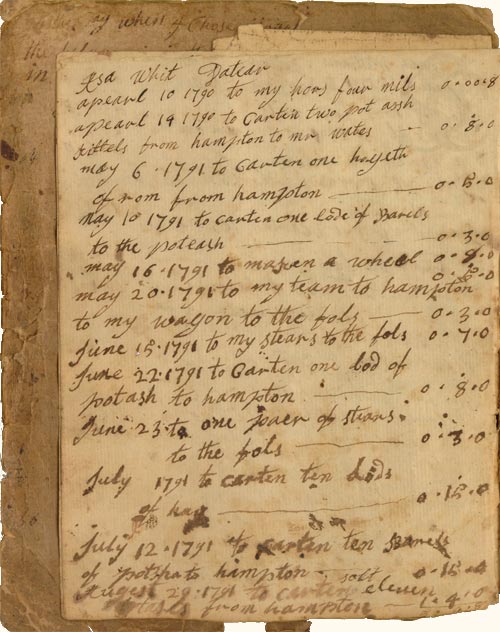 of when
the
in
Asa Whit Datear
apearl 10 1790 to my hors four mils 0-00-8
apearl 19 1790 to Carten two pot assh
kittels from hampton to mr wates 0-8-0
may 6-1791 to Carten one hogseth
of rom from hampton 0-5-0
may 10 1791 to Carten one lode of Barels
to the poteash 0-3-0
may 16-1791 to maken a wheel 0-8-0
may 20-1791 to my team to hampton 0-8-0
to my wagon to the fols 0-3-0
June 15-1791 to my stears to the fols 0-7-0
June 22-1791 to Carten one lod of
potash to hampton 0-8-0
June 23 to one paer of stears
to the fols 0-3-0
July 1791 to carten ten lods
of hay 0-15-0
July 12-1791 to carten ten Barels
of potshats hampton 0-15-4
August 29-1791 to carten eleven
salt
from hampton 1-4-0